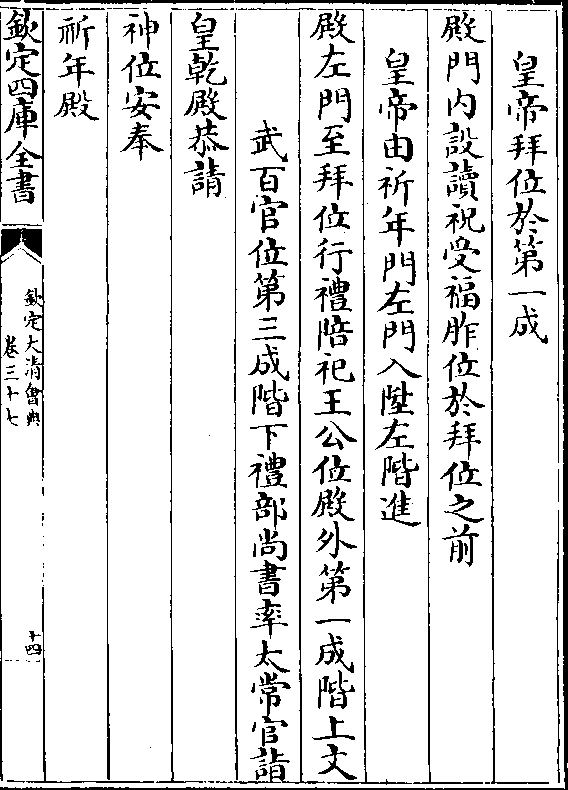 皇帝拜位於第一成
殿門内設讀祝受福胙位於拜位之前
皇帝由祈年門左門入陞左階進
殿左門至拜位行禮陪祀王公位殿外第一成階上文
武百官位第三成階下禮部尚書率太常官詣
皇乾殿恭請
神位安奉
祈年殿
欽定四庫全書
欽定大清會典
卷三十七
十四